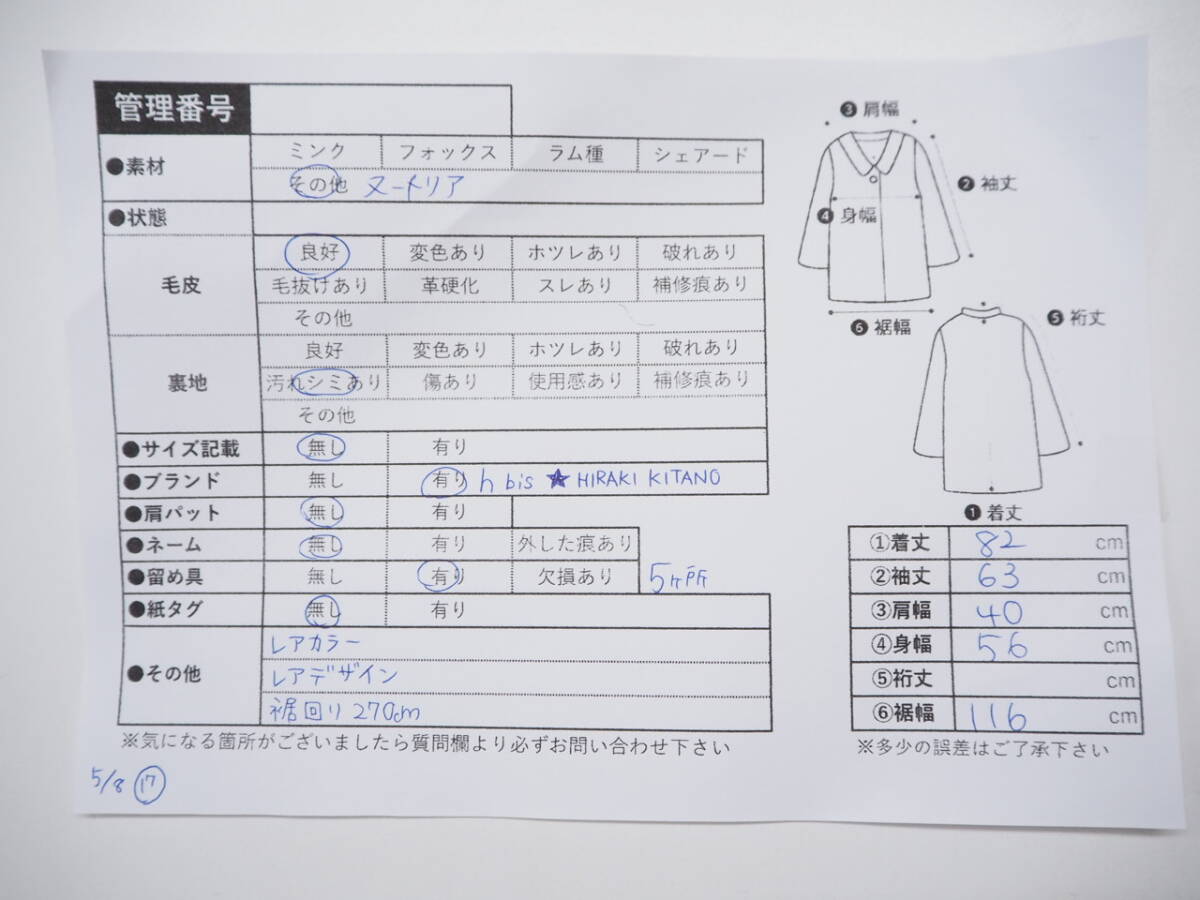 管理番号
●素材 ミンク フォックス ラム種 シェアード
その他 ヌートリア
●状態
毛皮 良好 変色あり ホツレあり 破れあり
毛抜けあり 革硬化 スレあり 補修痕あり
その他
裏地 良好 変色あり ホツレあり 破れあり
汚れシミあり 傷あり 使用感あり 補修痕あり
その他
●サイズ記載 無し 有り
●ブランド 無し 有り h bis ★ HIRAKI KITANO
●肩パット 無し 有り
●ネーム 無し 有り 外した痕あり
●留め具 無し 有り 欠損あり 5ヶ所
●紙タグ 無し 有り
●その他 レアカラー
レアデザイン
裾回り 270cm
※気になる箇所がございましたら質問欄より必ずお問い合わせ下さい
5/8 17
❸ 肩幅
❷ 袖丈
❹ 身幅
❻ 裾幅
❺ 裄丈
❶ 着丈
①着丈 82 cm
②袖丈 63 cm
③肩幅 40 cm
④身幅 56 cm
⑤裄丈 cm
⑥裾幅 116 cm
※多少の誤差はご了承下さい